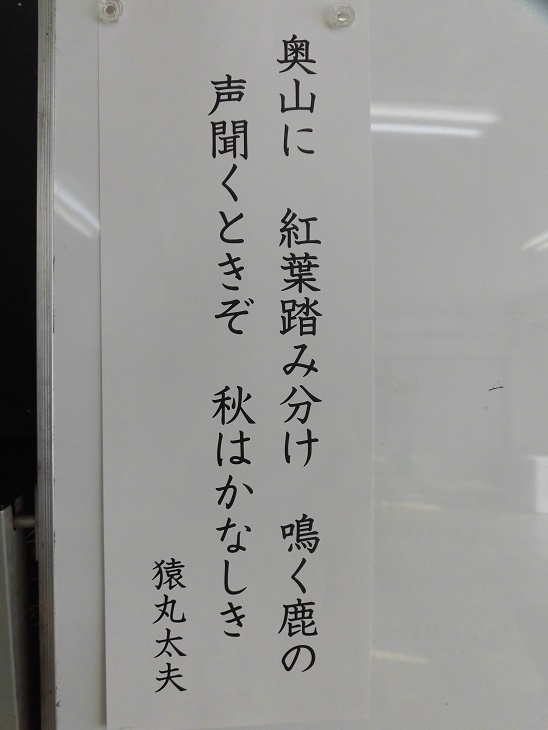 奥山に　紅葉踏み分け　鳴く鹿の
声聞くときぞ　秋はかなしき
猿丸太夫